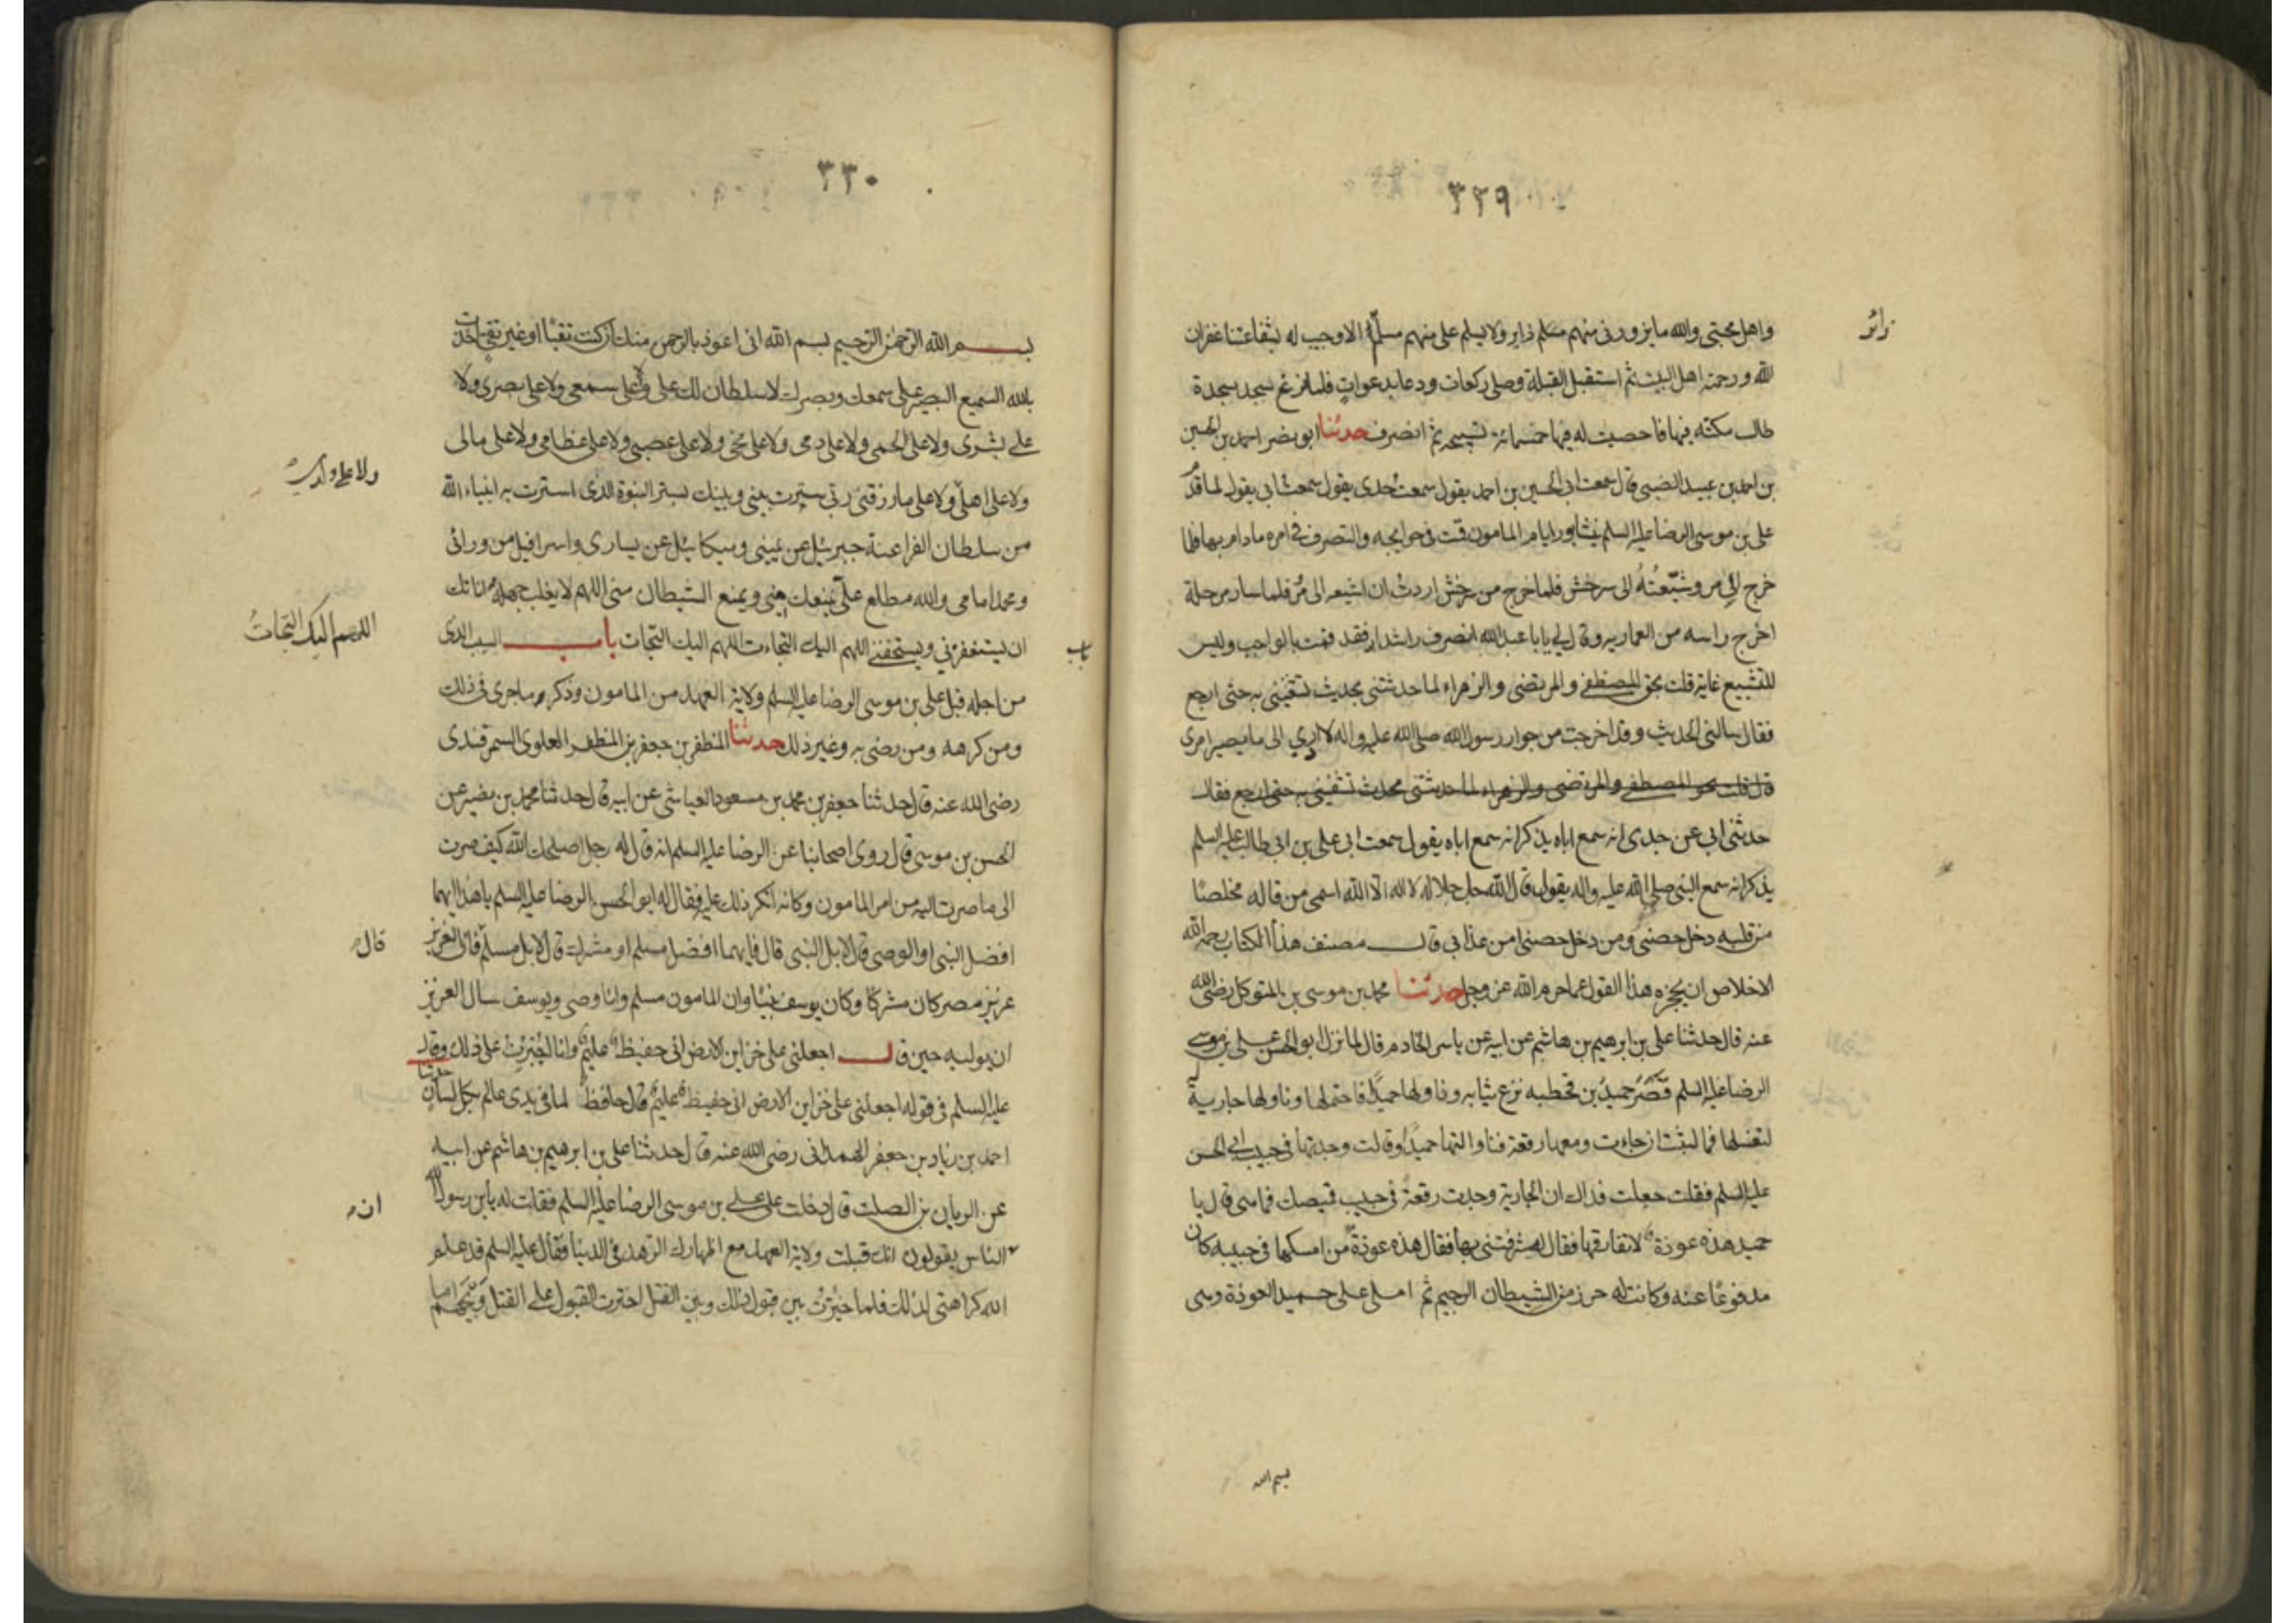 ٣٢٩
زائر
واهل محبتى والله ما يزورنى منهم مسلم زاير ولا يسلم على منهم مسلم الا وجب له بشفاعتنا غفران
الله ورحمته اهل البيت ثم استقبل القبلة وصلى ركعات ودعا بدعوات فلما فرغ سجد سجدة
طال مكثه فيها فاحصيت له فيها خمسمائة تسبيحة ثم انصرف حدثنا ابو نصر احمد بن الحسين
بن احمد بن عبيد الضبى قال سمعت ابى الحسين بن احمد يقول سمعت جدى يقول سمعت ابى يقول لما قدم
على بن موسى الرضا عليه السلم نيشابور ايام المامون قمت فى حوايجه والتصرف فى امره مادام بها فلما
خرج الى مرو شيّعتُهُ الى سرخس فلما خرج من سرخس اردت ان اشيعه الى مرو فلما سار مرحلة
اخرج راسه من العمارية وقال لى يابا عبد الله انصرف راشدا فقد قمت بالواجب وليس
للتشييع غاية قلت بحق المصطفى والمرتضى والزهراء لما حدثتنى بحديث تشفينى به حتى ارجع
فقال سالنى الحديث وقد اخرجت من جوار رسول الله صلى الله عليه واله لا ادرى الى ما يصير امرى
قال قلت بحق المصطفى والمرتضى والزهراء لما حدثتنى بحديث تشفينى به حتى ارجع فقال
حدثنى ابى عن جدى انه سمع اباه يذكر انه سمع اباه يقول سمعت ابى على بن ابى طالب عليه السلم
يذكر انه سمع النبى صلى الله عليه واله يقول قال الله جل جلاله لا اله الا الله اسمى من قاله مخلصًا
من قلبه دخل حصنى ومن دخل حصنى امن عذابى قال مصنف هذا الكتاب رحمه الله
الاخلاص ان يحجزه هذا القول عما حرم الله عز وجل حدثنا محمد بن موسى بن المتوكل رضى الله
عنه قال حدثنا على بن ابرهيم بن هاشم عن ابيه عن ياسر الخادم قال لما نزل ابو الحسن على بن موسى
الرضا عليه السلم قَصْرَ حميدُ بن قحطبه نزع ثيابه وناولها حميدًا فاحتملها وناولها جارية له
لتغسلها فما لبثت ان جاءت ومعها رقعة فناولتها حميدًا وقالت وجدتها فى جيب ابى الحسن
عليه السلم فقلت جعلت فداك ان الجارية وجدت رقعة فى جيب قميصك فما هى قال يا
حميد هذه عوذة لا نفارقها فقال له شرفتنى بها فقال هذه عوذة من امسكها فى جيبه كان
مدفوعًا عنه وكانت له حرز من الشيطان الرجيم ثم املى على حميد العوذة وهى
بسم الله
٣٣٠
بسم الله الرحمن الرحيم بسم الله انى اعوذ بالرحمن منك ان كنت تقيًا او غير تقى اخذت
بالله السميع البصير على سمعك وبصرك لا سلطان لك على ولا على سمعى ولا على بصرى ولا
على بشرى ولا على لحمى ولا على دمى ولا على مخى ولا على عصبى ولا على عظامى ولا على مالى
ولا على اهلى ولا على ما رزقنى ربى سترت بينى وبينك بستر النبوة الذى استترت به انبياء الله
من سلطان الفراعنة جبرئيل عن يمينى وميكائيل عن يسارى واسرافيل من ورائى
ومحمد امامى والله مطلع على يمنعك منى ويمنع الشيطان منى اللهم لا يغلب جهله اناتك
اللهم اليك التجات
ان يستفزنى ويستخفنى اللهم اليك التجات اللهم اليك التجات باب السبب الذى
باب
من اجله قبل على بن موسى الرضا عليه السلم ولاية العهد من المامون وذكر ما جرى فى ذلك
ومن كرهه ومن رضى به وغير ذلك حدثنا المظفر بن جعفر بن المظفر العلوى السمرقندى
رضى الله عنه قال حدثنا جعفر بن محمد بن مسعود العياشى عن ابيه قال حدثنا محمد بن نصير عن
الحسن بن موسى قال روى اصحابنا عن الرضا عليه السلم انه قال له رجل اصلحك الله كيف صرت
الى ما صرت اليه من امر المامون وكانه انكر ذلك عليه فقال له ابو الحسن الرضا عليه السلم يا هذا ايهما
قال
افضل النبى او الوصى قال لا بل النبى قال فايهما افضل مسلم او مشرك قال لا بل مسلم فان العزيز
عزيز مصر كان مشركًا وكان يوسف نبيًا وان المامون مسلم وانا وصى ويوسف سال العزيز
ان يوليه حين قال اجعلنى على خزاين الارض انى حفيظ عليم وانا اُجبرت على ذلك وقال
عليه السلم فى قوله اجعلنى على خزاين الارض انى حفيظ عليم قال حافظ لما فى يدى عالم بكل لسان حدثنا
احمد بن زياد بن جعفر الهمدانى رضى الله عنه قال حدثنا على بن ابرهيم بن هاشم عن ابيه
ان
عن الريان بن الصلت قال دخلت على على بن موسى الرضا عليه السلم فقلت له يابن رسول الله
الناس يقولون انك قبلت ولاية العهد مع اظهارك الزهد فى الدنيا فقال عليه السلم قد علم
الله كراهتى لذلك فلما خيّرت بين قبول ذلك وبين القتل اخترت القبول على القتل ويحهم اما